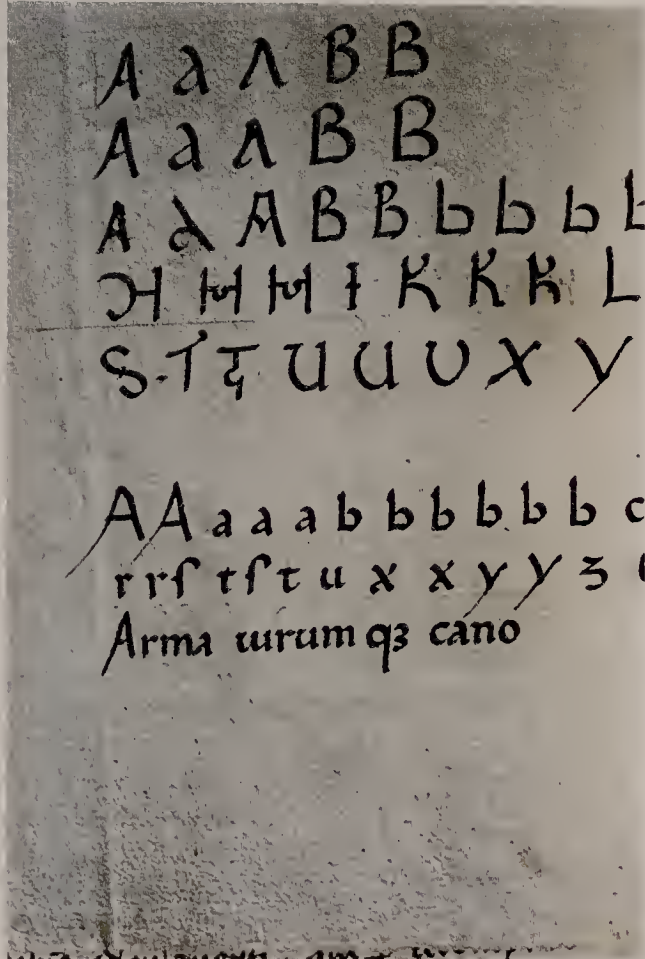 A a Λ B B
A a Λ B B
A λ A B B b b b b
H H H I K K K L
S T T U U U X Y
A A a a a b b b b b b c
r r ſ t ſ t u x x y y ʒ
Arma uirum qʒ cano